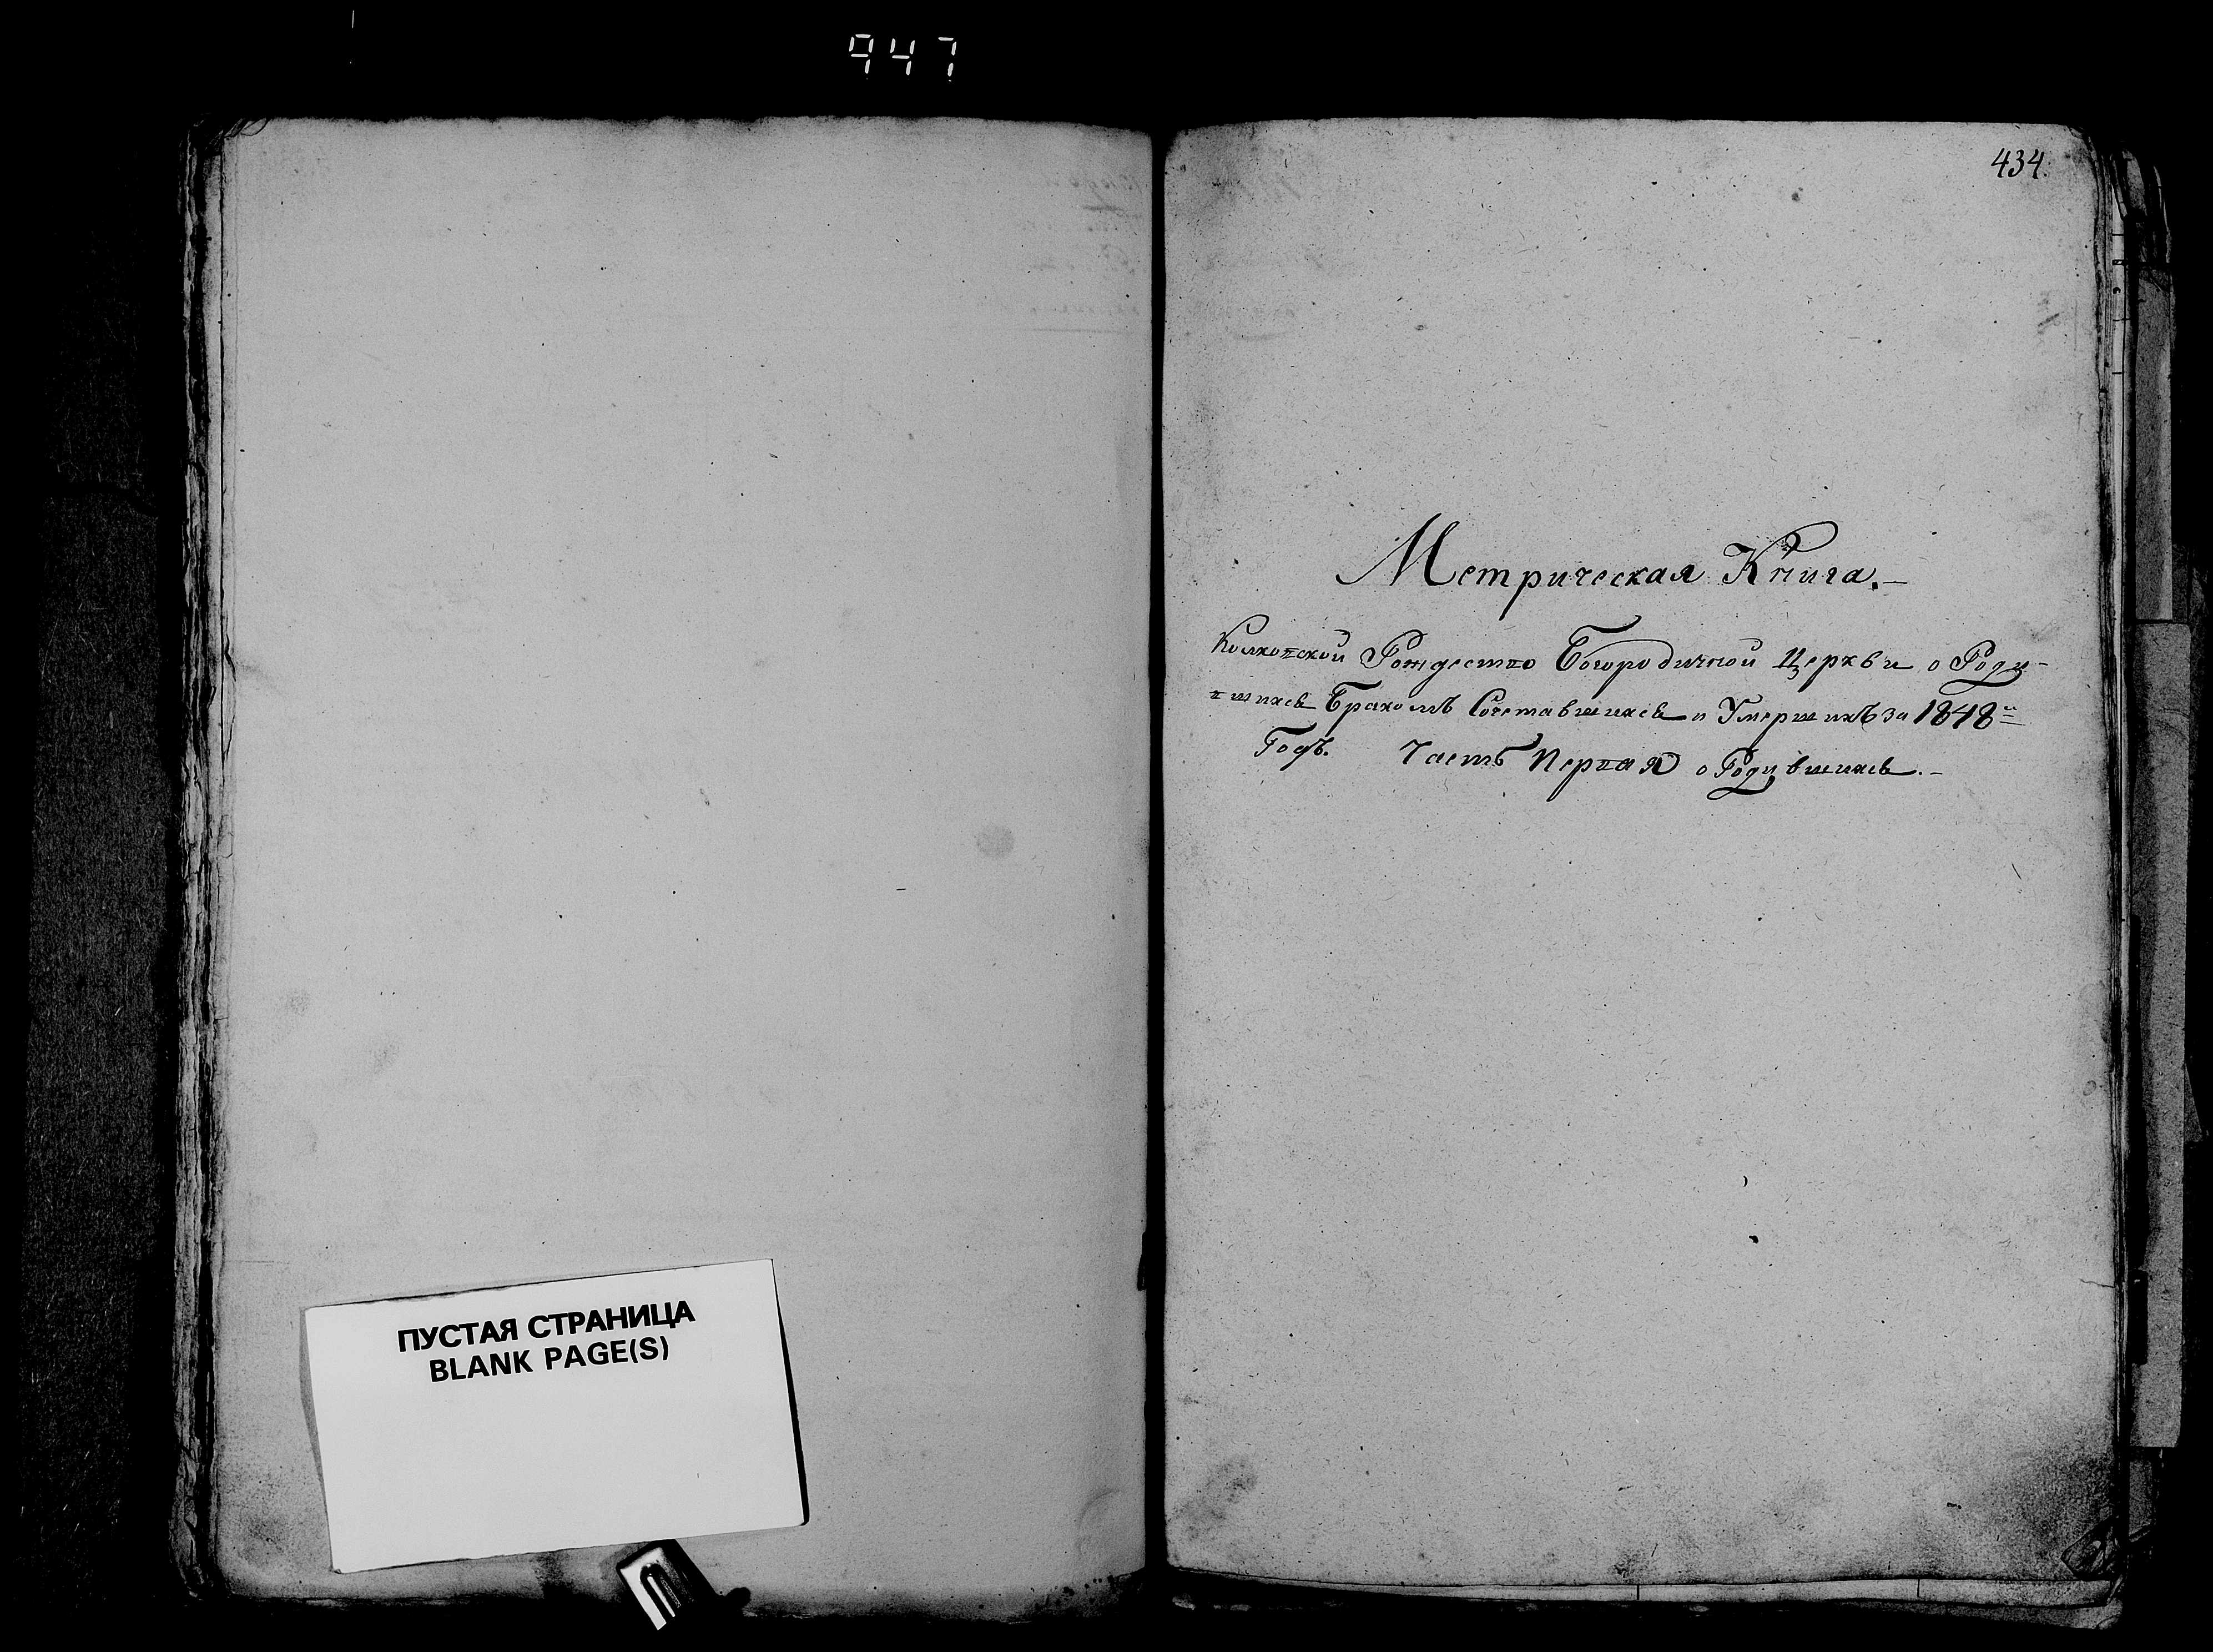 947
434.
Метрическая Книга.—
Колковской Рождество Богородичной Церкви о Роди-
вшихся Бракомъ Сочетавшихся и Умершихъ за 1848й
Годъ. Часть Первая о Родившихся.—
ПУСТАЯ СТРАНИЦА
BLANK PAGE(S)